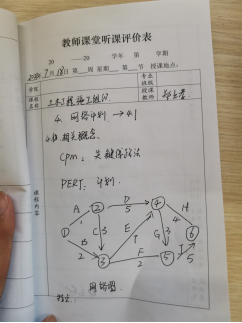 教师课堂听课评价表
20 —20 学年 第 学期
年7月18日 第 周 星期 第 节 授课地点:
学院
专业
班级
课程
名称
土木工程施工组织
授课
教师
4. 网络计划 → 41
4.1 相关概念.
CPM: 关键线路法
PERT: 计划.
课程内容
A
2
D
5
4
H
4
1
B
2
C
3
E
F
2
G
3
I
5
6
3
5
网络图